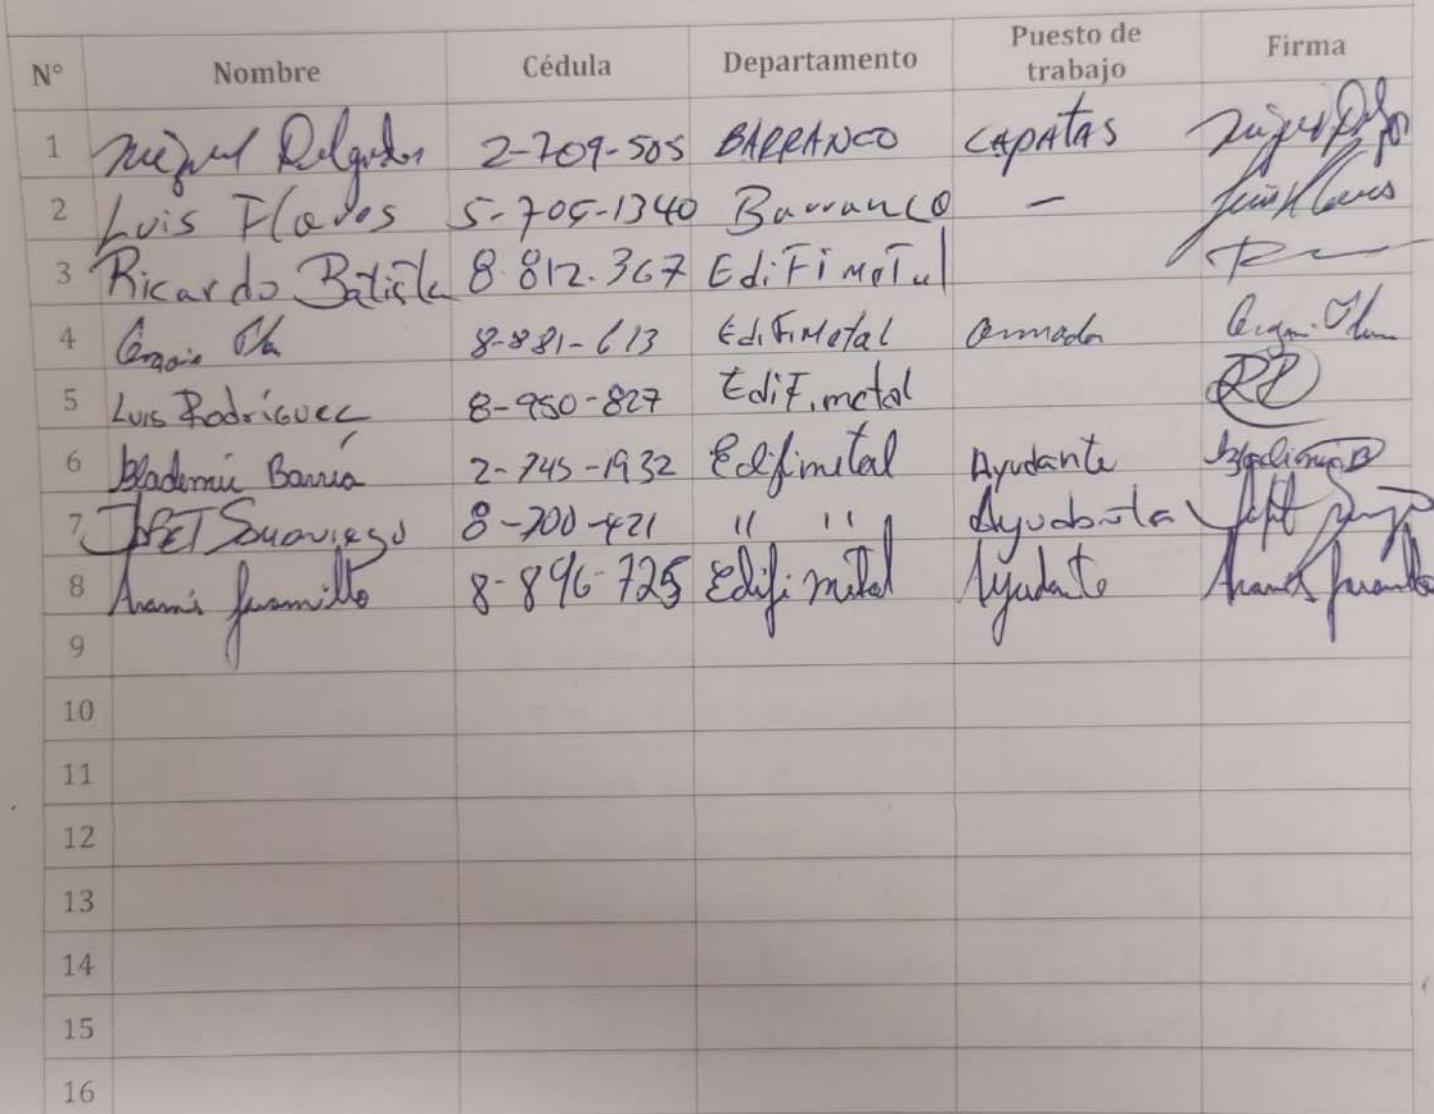 N° Nombre Cédula Departamento Puesto de trabajo Firma
1 Miguel Delgado 2-709-505 BARRANCO CAPATAS
2 Luis Flores 5-705-1340 Barranco —
3 Ricardo Batista 8 812.367 EdiFiMeTal
4 8-881-613 EdiFiMetal
5 Luis Rodríguez 8-950-827 EdiFimetal
6 Bladimir Barría 2-745-1932 Edifimetal Ayudante
7 8-700-421 " " Ayudante
8 Aramis Jaramillo 8-896-725 Edifimetal Ayudante
9
10
11
12
13
14
15
16